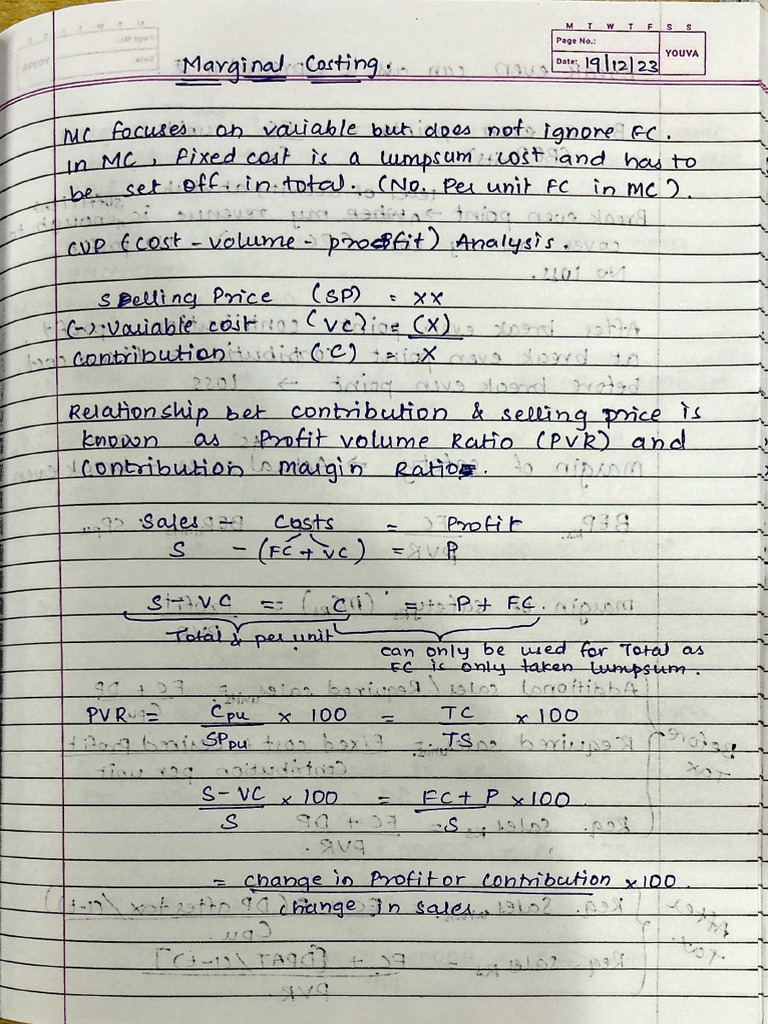 M T W T F S S
Page No.:
YOUVA
Date: 19/12/23
Marginal Costing.
MC focuses on variable but does not ignore FC.
In MC, fixed cost is a lumpsum cost and has to
be set off in total. (No. Per unit FC in MC).
CVP (cost-volume-profit) Analysis.
Selling Price (SP) = XX
(-) Variable cost (VC) = (X)
Contribution (C) = X
Relationship bet contribution & selling price is
known as Profit Volume Ratio (PVR) and
Contribution Margin Ratio.
Sales - Costs = Profit
S - (FC + VC) = P
S - VC = C = P + FC.
Total & per unit
can only be used for Total as
FC is only taken lumpsum.
PVR = Cpu / SPpu × 100 = TC / TS × 100
S - VC / S × 100 = FC + P / S × 100
= change in Profit or Contribution / change in sales × 100.